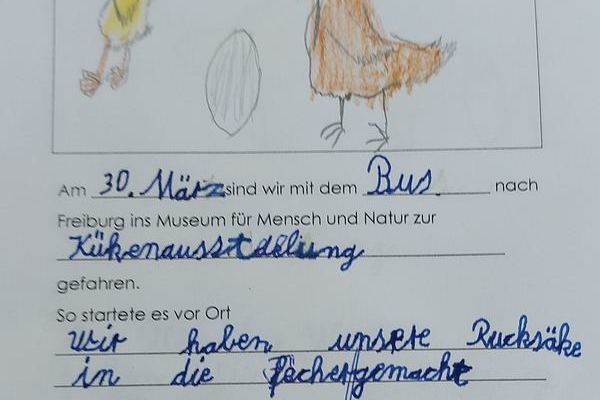 Am 30. März sind wir mit dem Bus nach
Freiburg ins Museum für Mensch und Natur zur
Kükenausstdellung
gefahren.
So startete es vor Ort
Wir haben unsere Rucksäke
in die Fächer gemacht